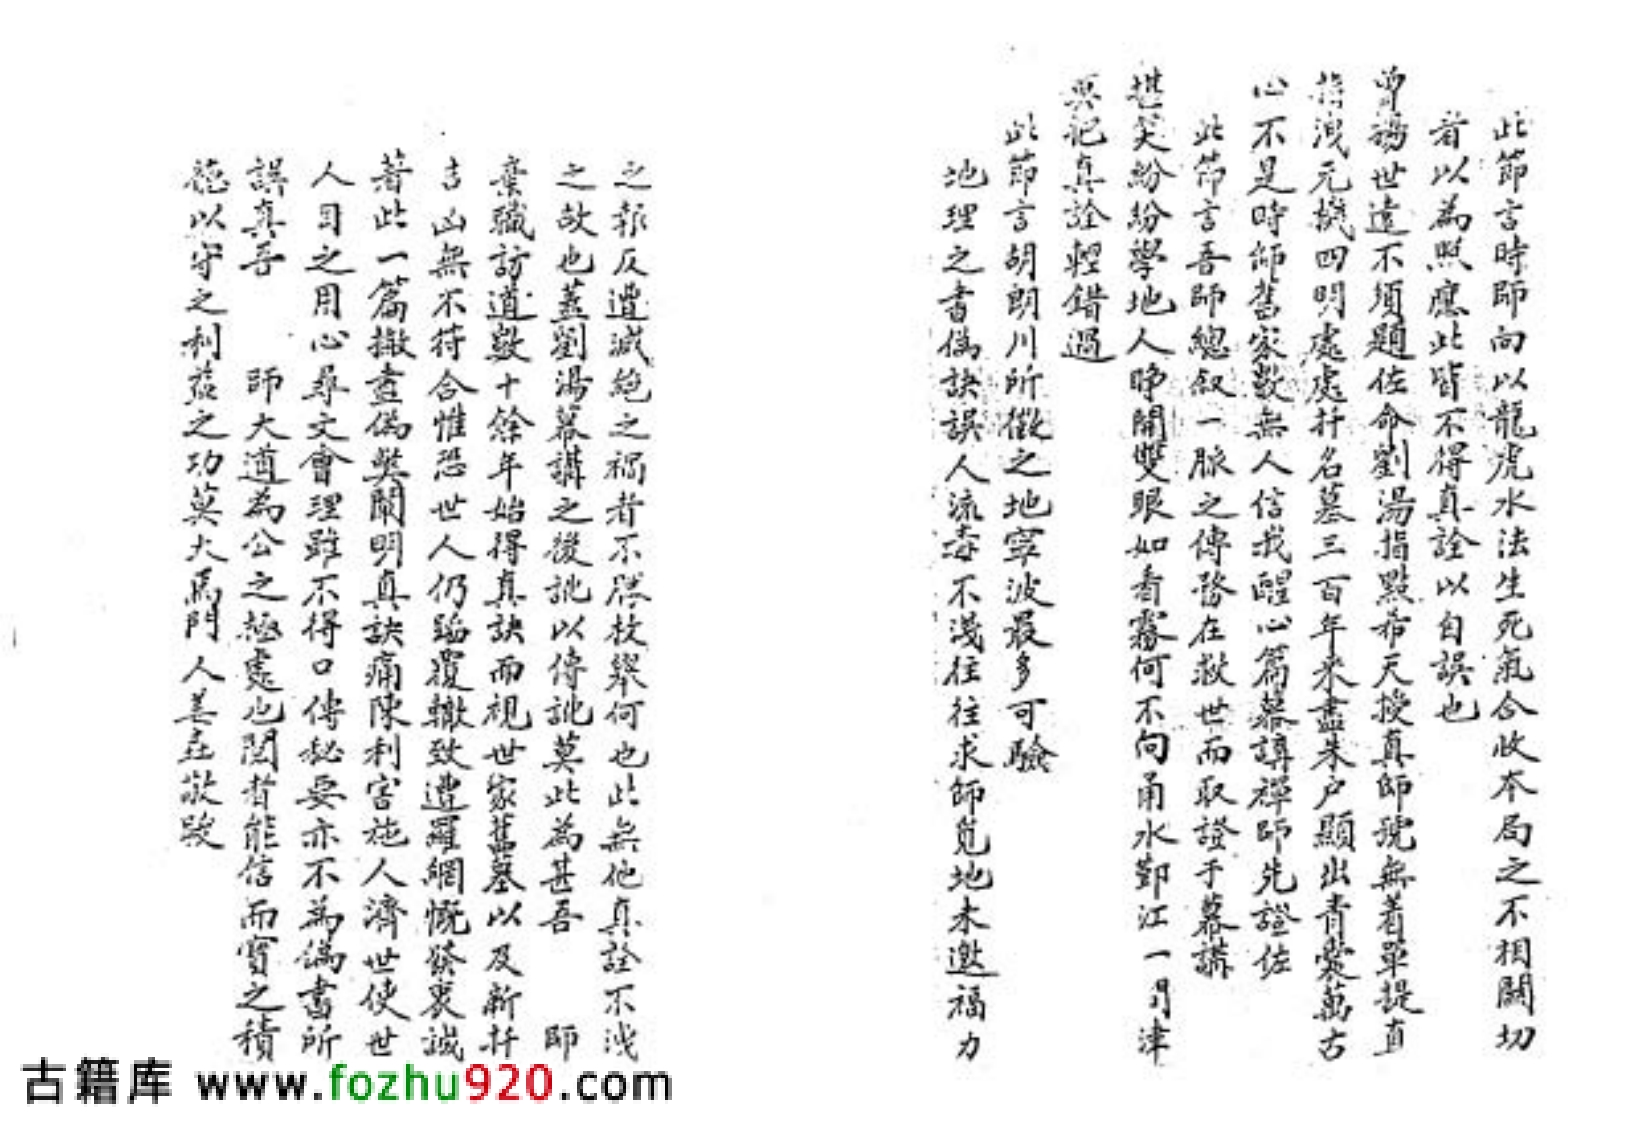 此節言時師向以龍虎水法生死氣合收本局之不相關切
者以為照應此皆不得真詮以自誤也
曾楊世遠不須題佐命劉湯指點希天授真師號無着單提直
指洩元機四明處處扦名墓三百年來盡朱戶顯出青囊萬古
心不是時師舊家數無人信我醒心篇幕講禪師先證佐
此節言吾師總叙一脈之傳務在救世而取證于幕講
堪笑紛紛學地人睜開雙眼如看霧何不向甬水鄞江一問津
要把真詮輕錯過
此節言胡朗川所徵之地寧波最多可驗
地理之書偽訣誤人流毒不淺往往求師覓地未邀福力
之報反遭滅絶之禍者不勝枚舉何也此無他真詮不洩
之故也蓋劉湯幕講之後訛以傳訛莫此為甚吾 師
棄職訪道數十餘年始得真訣而視世家舊墓以及新扦
吉凶無不符合惟恐世人仍蹈覆轍致遭羅網慨發衷誠
著此一篇撤盡偽獘闡明真訣痛陳利害施人濟世使世
人目之用心尋文會理雖不得口傳秘要亦不為偽書所
誤真吾 師大道為公之極處也閱者能信而寶之積
德以守之利益之功莫大焉門人姜垚敬跋
古籍库 www.fozhu920.com